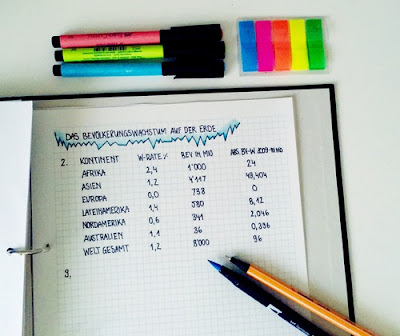 DAS BEVÖLKERUNGSWACHSTUM AUF DER ERDE
2. KONTINENT W-RATE % BEV IN MIO
AFRIKA 2,4 1'000 24
ASIEN 1,2 4'117 49,404
EUROPA 0,0 738 0
LATEINAMERIKA 1,4 580 8,12
NORDAMERIKA 0,6 341 2,046
AUSTRALIEN 1,1 36 0,396
WELT GESAMT 1,2 8'000 96
3.